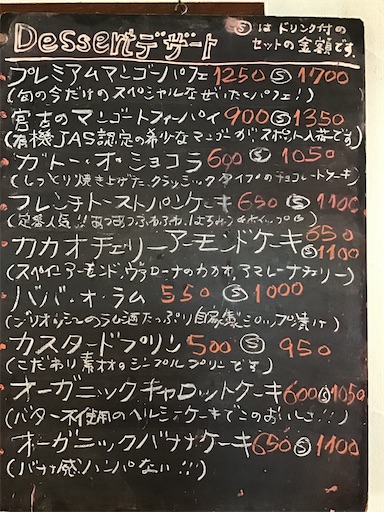 Dessert デザート
Ⓢ は ドリンク付の
セットの金額です。
プレミアムマンゴーパフェ 1250 Ⓢ 1700
(旬の今だけのスペシャルなぜいたくパフェ!)
宮古のマンゴートファーパイ 900 Ⓢ 1350
(有機JAS認定の希少なマンゴーがスポット入荷です)
ガトー・オ・ショコラ 600 Ⓢ 1050
(しっとり焼き上げたクラッシックタイプのチョコレートケーキ)
フレンチトーストパンケーキ 650 Ⓢ 1100
(定番人気!!あつあつふわふわ、はちみつ&ホイップ)
カカオチェリーアーモンドケーキ 650 Ⓢ 1100
(スペイン アーモンド、ヴァローナのカカオ、アマレーナチェリー)
ババ・オ・ラム 550 Ⓢ 1000
(ブリオッシュのラム酒たっぷり自家製シロップ漬け)
カスタードプリン 500 Ⓢ 950
(こだわり素材のシンプルプリンです)
オーガニックキャロットケーキ 600 Ⓢ 1050
(バター不使用のヘルシーケーキでこのおいしさ!!)
オーガニックバナナケーキ 650 Ⓢ 1100
(バナナ感ハンパない!!)